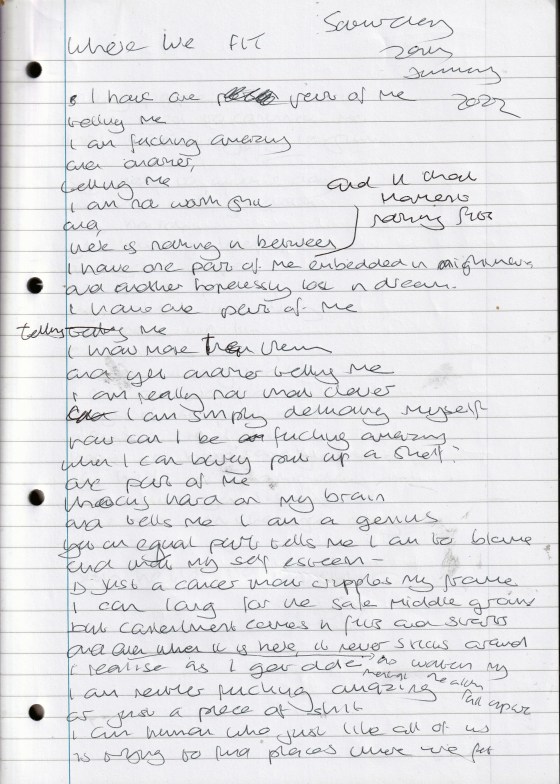 Where We FIT
Saturday
29th
January
2022
I have one part of me
telling me
I am fucking amazing
and another,
telling me
I am not worth shit
and,
there is nothing in between
and in that
moment
nothing fits
I have one part of me embedded in nightmares
and another hopelessly lost in dream.
I have one part of me
telling me
I know more than them
and yet another telling me
I am really not that clever
I am simply deluding myself
how can I be fucking amazing
when I can barely put up a shelf?
one part of me
knocks hard on my brain
and tells me I am a genius
yet an equal part tells me I am to blame
and that my self esteem -
is just a cancer that cripples my frame
I can long for the safe middle ground
but contentment comes in fits and starts
and even when it is here, it never sticks around
I realise as I get older to watch my
mental health
fall apart
I am neither fucking amazing
or just a piece of shit
I am human who just like all of us
is trying to find places where we fit